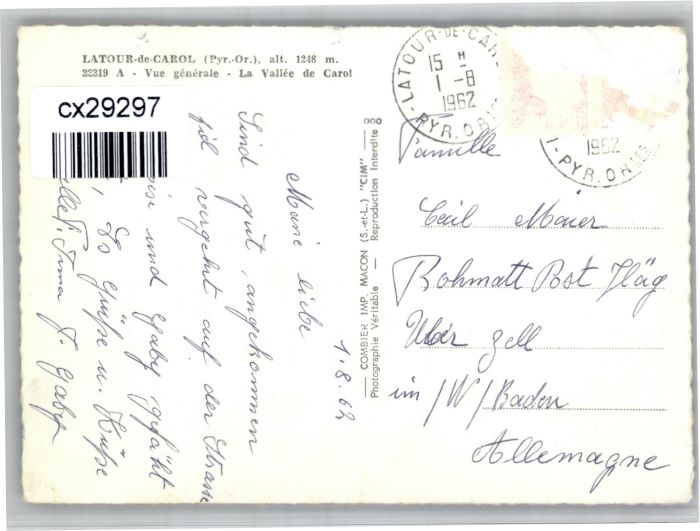 LATOUR-de-CAROL (Pyr.-Or.), alt. 1248 m.
32319 A - Vue générale - La Vallée de Carol
cx29297
LATOUR-DE-CAR
15 H
1-8
1962
PYR. OR
1962
PYR. ORIES
COMBIER IMP. MACON (S.-et-L.) "CIM"
Photographie Véritable — Reproduction Interdite
1.8.62
Meine liebe
Sind gut angekommen
viel auf der Strasse
und Gaby gefällt
Es Grüße u. Küße
Irma F. Gaby
Famille
Cecil Maier
Rohmatt Post Häg
Über Zell
im /W/ Baden
Allemagne